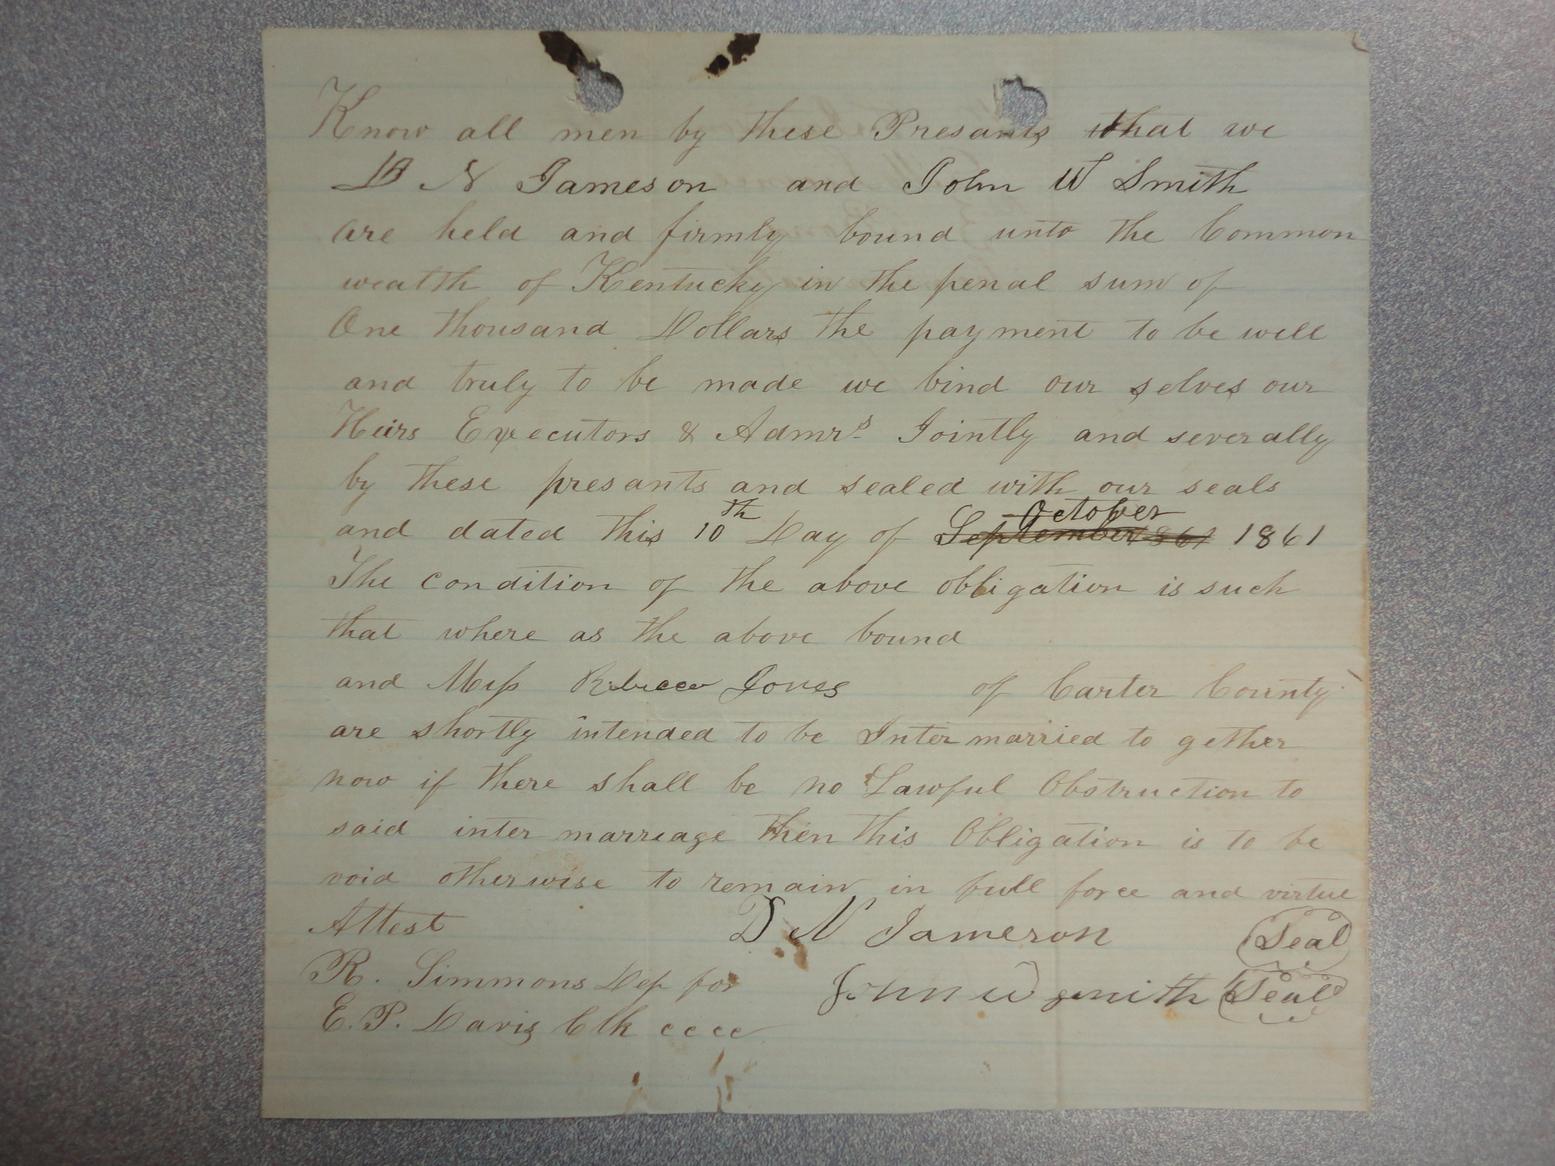 Know all men by these Presants that we
D N Jameson and John W Smith
are held and firmly bound unto the Common
wealth of Kentucky in the penal sum of
One thousand Dollars the payment to be well
and truly to be made we bind our selves our
Heirs Executors & Admrs Jointly and severally
by these presants and sealed with our seals
and dated this 10th Day of September 1861 October 1861
The condition of the above obligation is such
that where as the above bound
and Miss Rebecca Jones of Carter County
are shortly intended to be Inter married to gether
now if there shall be no Lawful Obstruction to
said inter marreage then this Obligation is to be
void otherwise to remain in full force and virtue
Attest D N Jameson Seal
R. Simmons Dep for John W Smith Seal
E. P. Davis Clk cccc